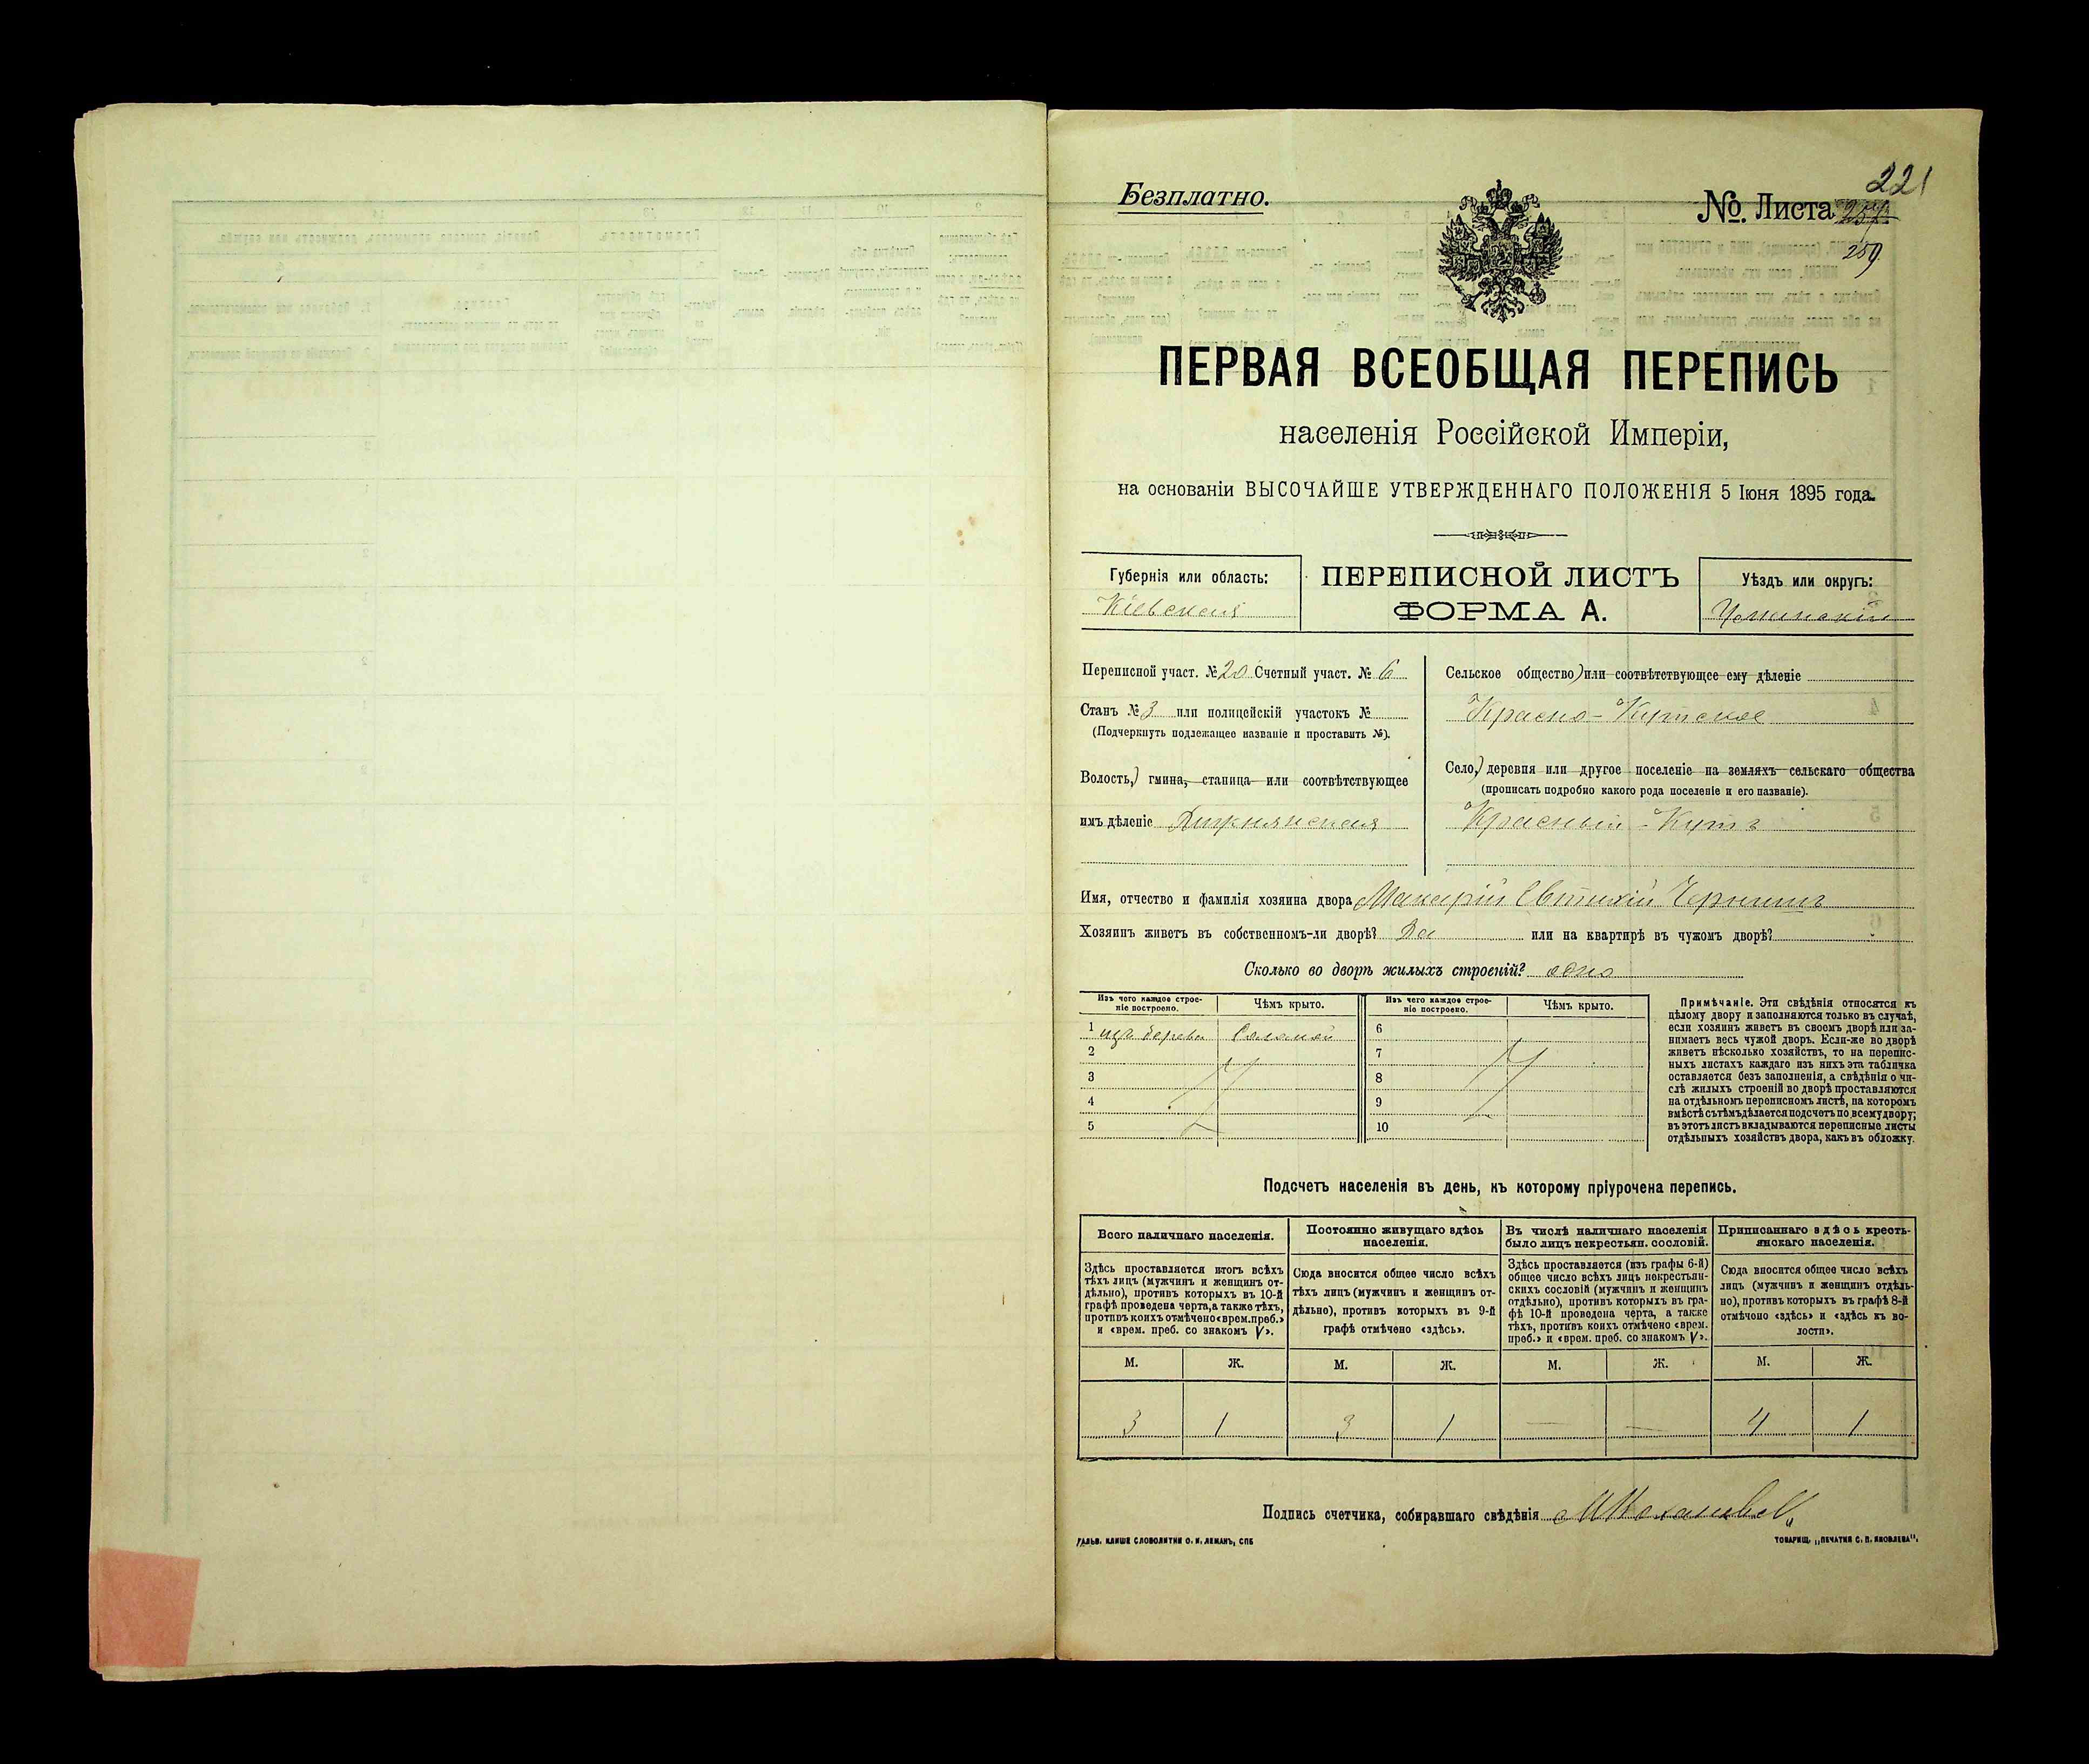 221
Безплатно.
№. Листа 257.
259
ПЕРВАЯ ВСЕОБЩАЯ ПЕРЕПИСЬ
населенія Россійской Имперіи,
на основаніи ВЫСОЧАЙШЕ УТВЕРЖДЕННАГО ПОЛОЖЕНІЯ 5 Іюня 1895 года.
Губернія или область:
Кіевская
ПЕРЕПИСНОЙ ЛИСТЪ
ФОРМА А.
Уѣздъ или округъ:
Уманскій
Переписной участ. № 20 Счетный участ. № 6
Станъ № 3 или полицейскій участокъ №
(Подчеркнуть подлежащее названіе и проставить №).
Волость,) гмина, станица или соотвѣтствующее
имъ дѣленіе
Сельское общество) или соотвѣтствующее ему дѣленіе
Красно-Кутское
Село,) деревня или другое поселеніе на земляхъ сельскаго общества
(прописать подробно какого рода поселеніе и его названіе).
Красный-Кутъ
Имя, отчество и фамилія хозяина двора Макарій Евтихій Чернышъ
Хозяинъ живетъ въ собственномъ-ли дворѣ? Да или на квартирѣ въ чужомъ дворѣ?
Сколько во дворѣ жилыхъ строеній? одно
Изъ чего каждое строеніе построено. Чѣмъ крыто. Изъ чего каждое строеніе построено. Чѣмъ крыто.
1 изъ дерева Соломой 6
2 7
3 8
4 9
5 10
Примѣчаніе. Эти свѣдѣнія относятся къ
цѣлому двору и заполняются только въ случаѣ,
если хозяинъ живетъ въ своемъ дворѣ или за-
нимаетъ весь чужой дворъ. Если-же во дворѣ
живетъ нѣсколько хозяйствъ, то на перепис-
ныхъ листахъ каждаго изъ нихъ эта табличка
оставляется безъ заполненія, а свѣдѣнія о чи-
слѣ жилыхъ строеній во дворѣ проставляются
на отдѣльномъ переписномъ листѣ, на которомъ
вмѣстѣ съ тѣмъ дѣлается подсчетъ по всему двору;
въ этотъ листъ вкладываются переписные листы
отдѣльныхъ хозяйствъ двора, какъ въ обложку.
Подсчетъ населенія въ день, къ которому пріурочена перепись.
Всего наличнаго населенія.
Здѣсь проставляется итогъ всѣхъ
тѣхъ лицъ (мужчинъ и женщинъ от-
дѣльно), противъ которыхъ въ 10-й
графѣ проведена черта, а также тѣхъ,
противъ коихъ отмѣчено «врем. преб.»
и «врем. преб. со знакомъ V».
Постоянно живущаго здѣсь
населенія.
Сюда вносится общее число всѣхъ
тѣхъ лицъ (мужчинъ и женщинъ от-
дѣльно), противъ которыхъ въ 9-й
графѣ отмѣчено «здѣсь».
Въ числѣ наличнаго населенія
было лицъ некрестьян. сословій.
Здѣсь проставляется (изъ графы 6-й)
общее число всѣхъ лицъ некрестьян-
скихъ сословій (мужчинъ и женщинъ
отдѣльно), противъ которыхъ въ гра-
фѣ 10-й проведена черта, а также
тѣхъ, противъ коихъ отмѣчено «врем.
преб.» и «врем. преб. со знакомъ V».
Приписаннаго здѣсь кресть-
янскаго населенія.
Сюда вносится общее число всѣхъ
лицъ (мужчинъ и женщинъ отдѣль-
но), противъ которыхъ въ графѣ 8-й
отмѣчено «здѣсь» и «здѣсь къ во-
лости».
М. Ж. М. Ж. М. Ж. М. Ж.
3 1 3 1 — — 4 1
Подпись счетчика, собиравшаго свѣдѣнія
ГАЛЬВ. КЛИШЕ СЛОВОЛИТНИ О. И. ЛЕМАНЪ, СПБ
ТОВАРИЩ. „ПЕЧАТНЯ С. П. ЯКОВЛЕВА".